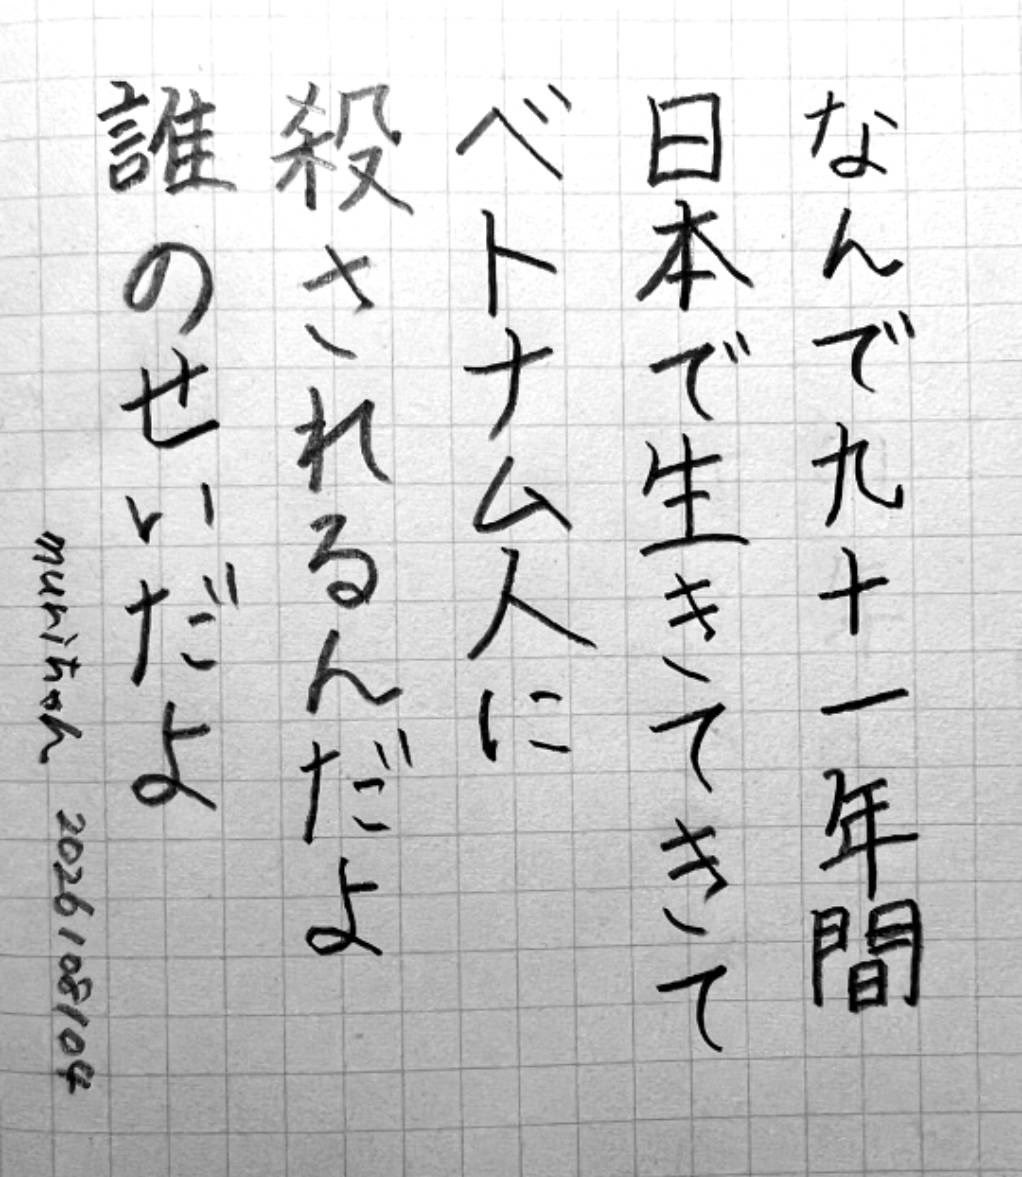 なんで九十一年間
日本で生きてきて
ベトナム人に
殺されるんだよ
誰のせいだよ
munichoh 2026/08/04